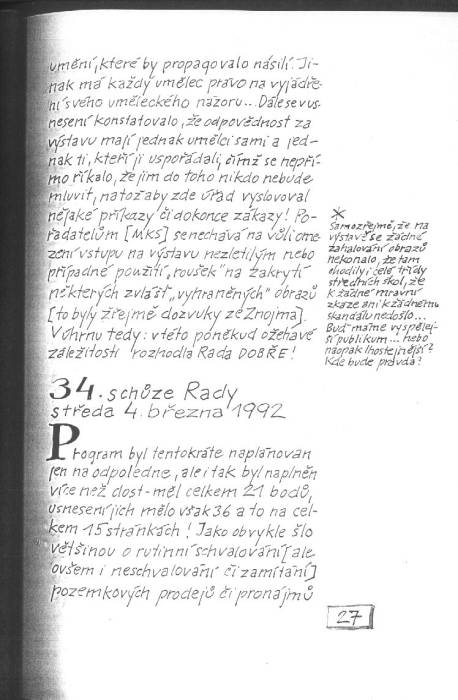 umění, které by propagovalo násilí. Ji-
nak má každý umělec právo na vyjádře-
ní svého uměleckého názoru... Dále se v us-
nesení konstatovalo, že odpovědnost za
výstavu mají jednak umělci sami a jed-
nak ti, kteří ji uspořádali, čímž se nepří-
mo říkalo, že jim do toho nikdo nebude
mluvit, natož aby zde úřad vyslovoval
nějaké příkazy či dokonce zákazy! Po-
řadatelům [MKS] se nechává na vůli ome-
zení vstupu na výstavu nezletilým nebo
případné použití „roušek" na zakrytí
některých zvlášť „vyhraněných" obrazů
[to byly zřejmě dozvuky ze Znojma].
Vúhrnu tedy: v této poněkud ožehavé
záležitosti rozhodla Rada DOBŘE!
*
Samozřejmě, že na
výstavě se žádné
zahalování obrazů
nekonalo, že tam
chodily i celé třídy
středních škol, že
k žádné mravní
zkáze ani k žádnému
skandálu nedošlo...
Buď máme vyspělej-
ší publikum... nebo
naopak lhostejnější?
Kde bude pravda?
34. schůze Rady
středa 4. března 1992
Program byl tentokráte naplánovan
jen na odpoledne, ale i tak byl naplněn
více než dost - měl celkem 21 bodů,
usnesení jich mělo však 36 a to na cel-
kem 15 stránkách! Jako obvykle šlo
většinou o rutinní schvalování [ale
ovšem i neschvalování či zamítání]
pozemkových prodejů či pronájmů
27